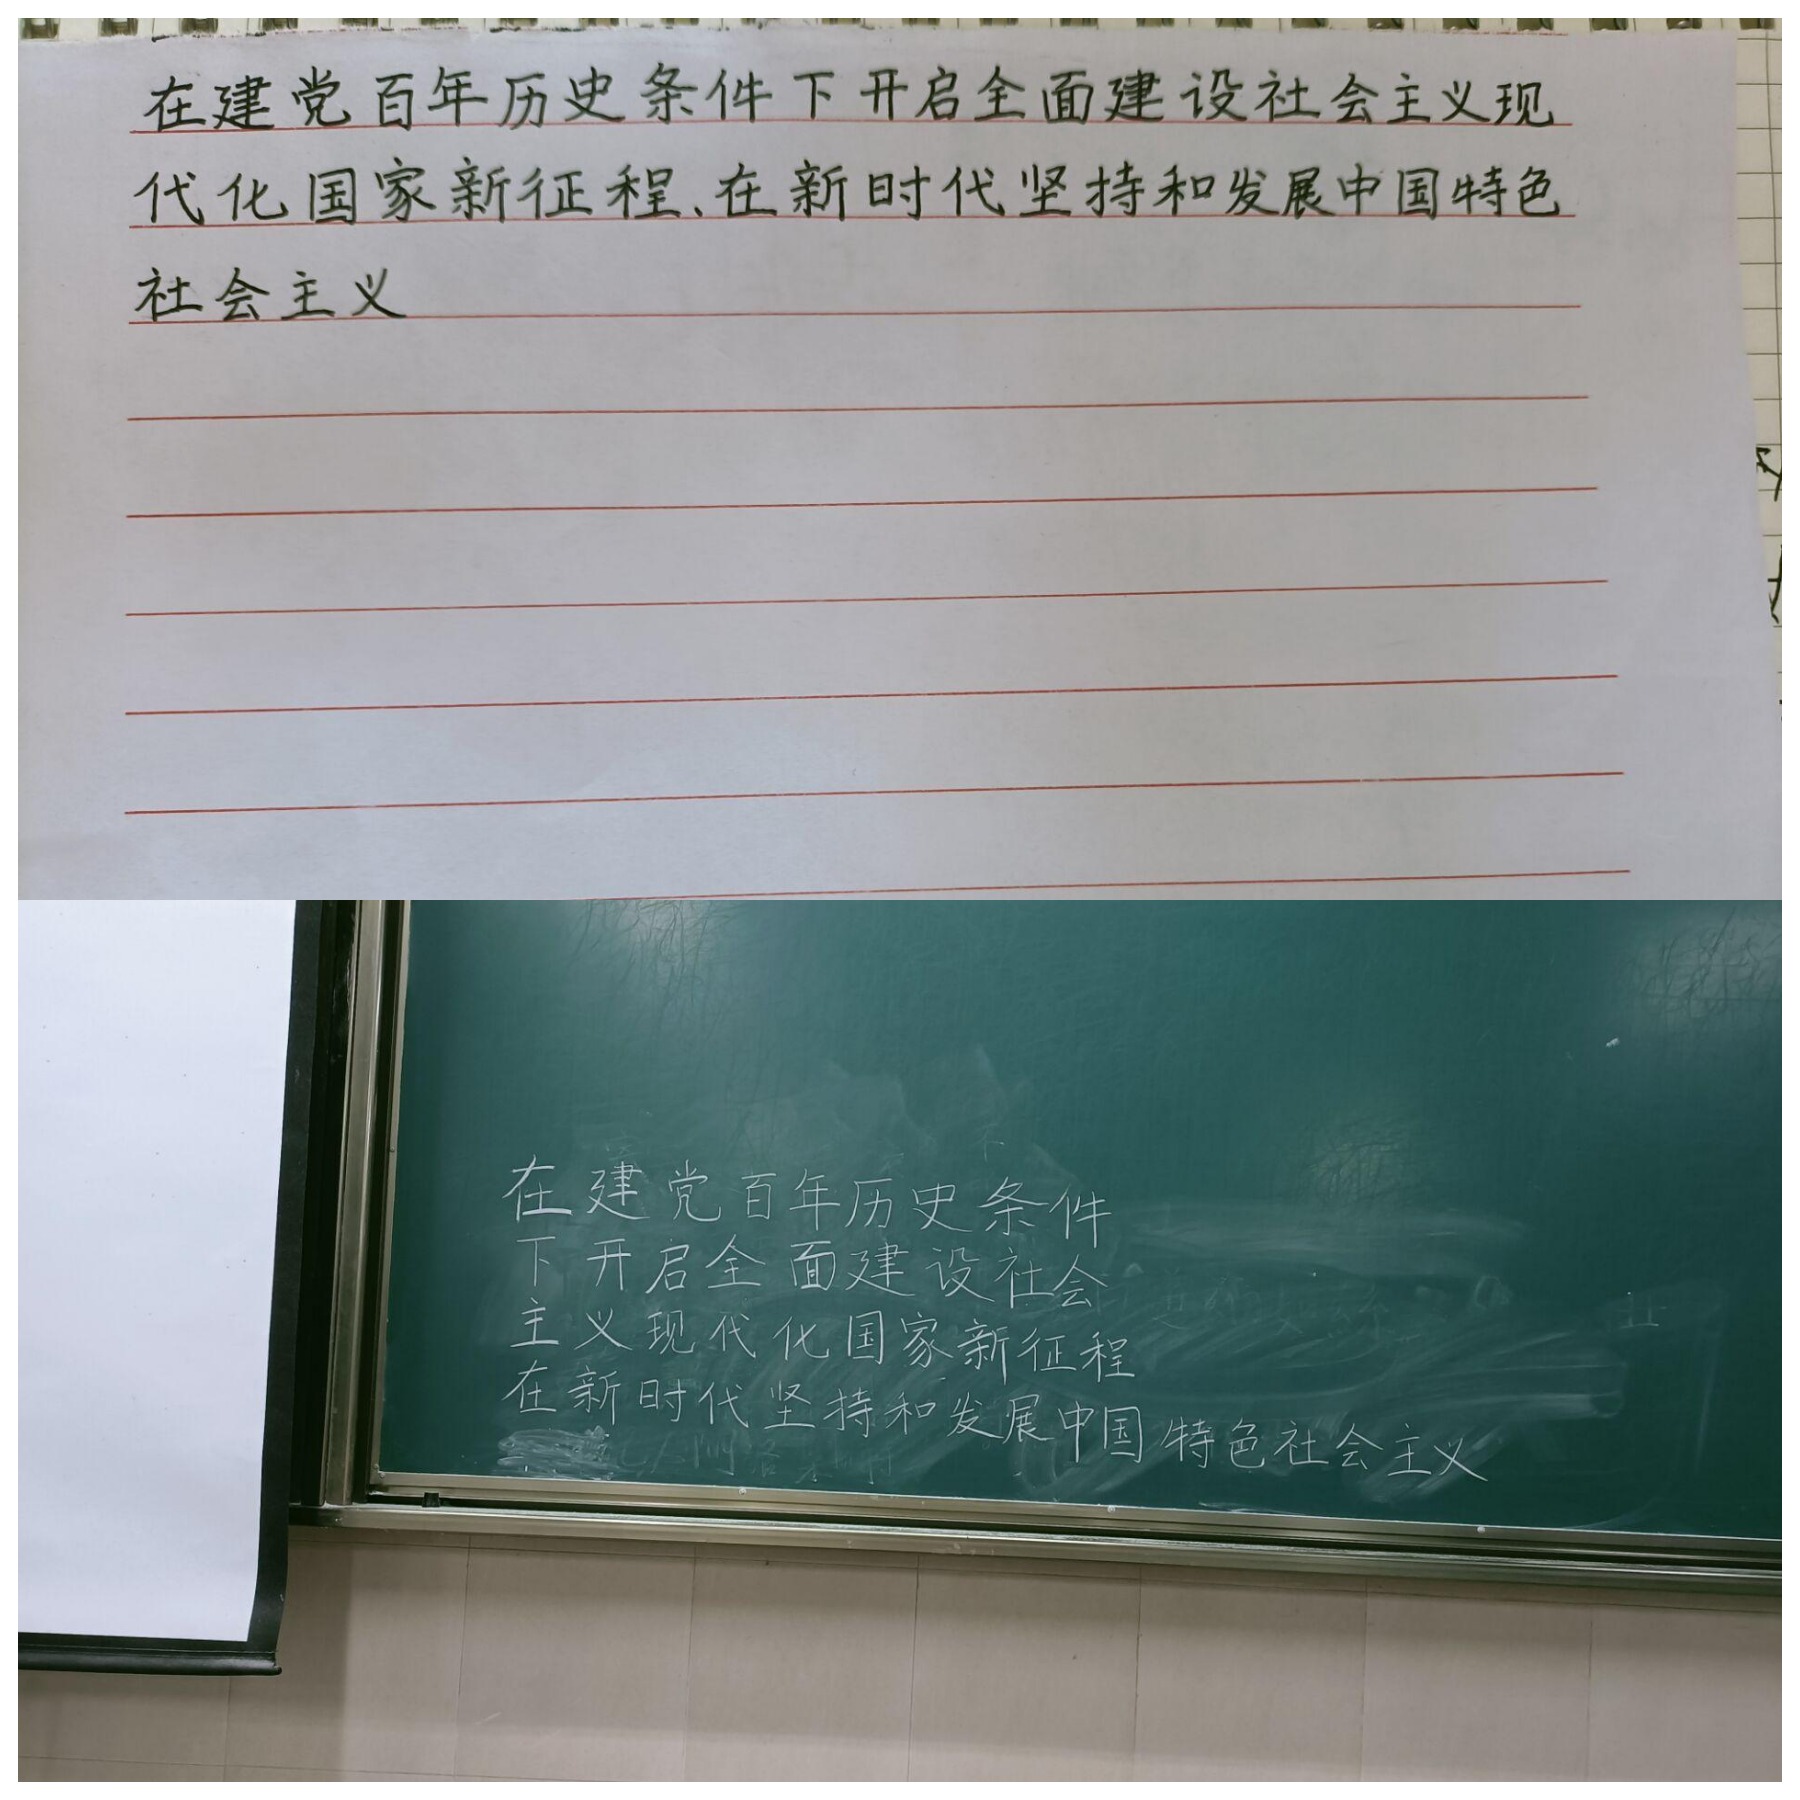 在建党百年历史条件下开启全面建设社会主义现
代化国家新征程、在新时代坚持和发展中国特色
社会主义
在建党百年历史条件
下开启全面建设社会
主义现代化国家新征程
在新时代坚持和发展中国特色社会主义